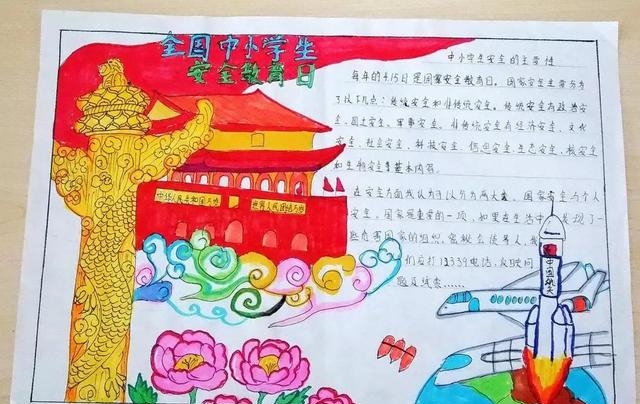 全国中小学生
安全教育日
中小学生安全的主要性
每年的4.15日是国家安全教育日。国家安全主要分为
了以下几点：传统安全和非传统安全。传统安全有政治安
全，国土安全，军事安全。非传统安全有经济安全，文化
安全，社会安全，科技安全，信息安全，生态安全，核安全
和生物安全等基本内容。
在安全方面我认为可以分为两大类，国家安全与个人
安全。国家最重要的一项，如果在生活中 发现了一
些危害国家的组织，
们应打12339电话，反映问
题及线索……
中华人民共和国万岁
世界人民团结万岁
中国航天